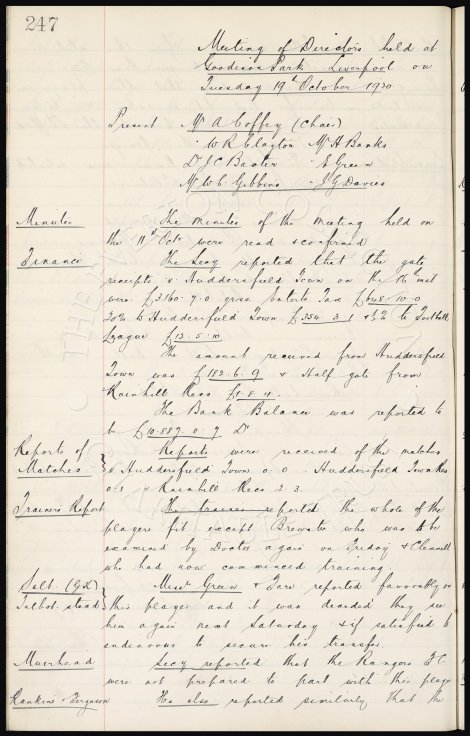 247
Meeting of Directors held at
Goodison Park Liverpool on
Tuesday 19th October 1920
Present Mr A Coffey (Chair)
" W R Clayton Mr H Banks
Dr J C Baxter " E Green
Mr W C Gibbins " J G Davies
Minutes The Minutes of the meeting held on
the 11th Oct. were read & confirmed
Finance The Secy reported that the gate
receipts v Huddersfield Town on the 16th inst
were £3160. 7. 0 gross. Enterts Tax £645. 10. 0
20% to Huddersfield Town £354. 3. 1 & ½% to Football
League £13. 5. 10.
The amount received from Huddersfield
Town was £182. 6. 9 & Half gate from
Rainhill Recs £1. 8. 4.
The Bank Balance was reported to
be £10.887. 0. 7 Dr
Reports of Matches Reports were received of the matches
v Huddersfield Town 0. 0. Huddersfield Town Res
0. 1 v Rainhill Recs 2. 3.
Trainers Report The trainer reported the whole of the
players fit except Brewster who was to be
examined by Doctor again on Friday & Clennell
who had now commenced training
Messrs Green & Fare reported favorably on
Talbot. Stead this player and it was decided they see
him again next Saturday & if satisfied to
endeavour to secure his transfer.
Muirhead Secy reported that the Rangers F.C.
were not prepared to part with this player
Rankine & Ferguson He also reported similarly that the